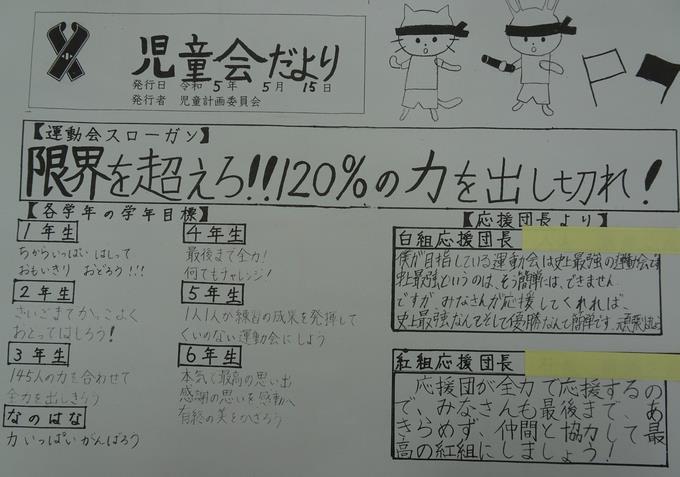 児童会だより
発行日 令和 5年 5月 15日
発行者 児童計画委員会
【運動会スローガン】
限界を超えろ!!120%の力を出し切れ!
【各学年の学年目標】
1年生
ちからいっぱい はしって
おもいきり おどろう!!!
2年生
さいごまでかっこよく
おどってはしろう!
3年生
145人の力を合わせて
全力を出しきろう
なのはな
力いっぱいがんばろう
4年生
最後まで全力!
何でもチャレンジ!
5年生
1人1人が練習の成果を発揮して
くいのない運動会にしよう
6年生
本気で最高の思い出
感謝の思いを感動へ
有終の美をかざろう
【応援団長より】
白組応援団長
僕が目指している運動会は史上最強の運動会です
史上最強というのは、そう簡単には、できません
ですが、みなさんが応援してくれれば、
史上最強なんてそして優勝なんて簡単です。
紅組応援団長
応援団が全力で応援するの
で、みなさんも最後まで、あ
きらめず、仲間と協力して最
高の紅組にしましょう!